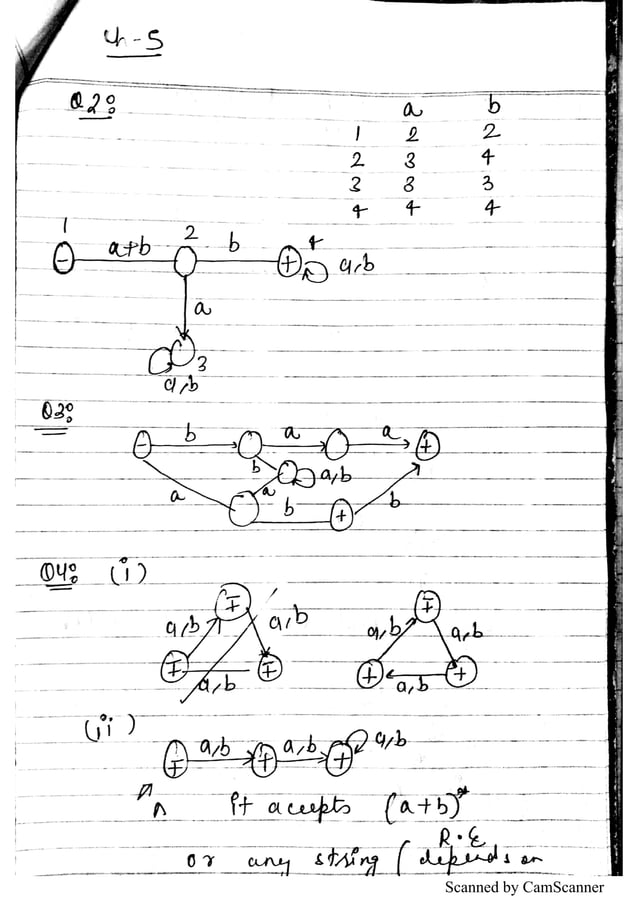 Ch-5
Q2:
a b
1 2 2
2 3 4
3 3 3
4 4 4
1 2 4
- a+b b + a,b
a
3
a,b
Q3:
- b a a +
b a,b
a a
b + b
Q4: (i)
∓ ∓
a,b a,b a,b a,b
∓ ∓ + +
a,b a,b
(ii)
∓ a,b + a,b + a,b
it accepts (a+b)*
R.E
or any string (depends on
Scanned by CamScanner